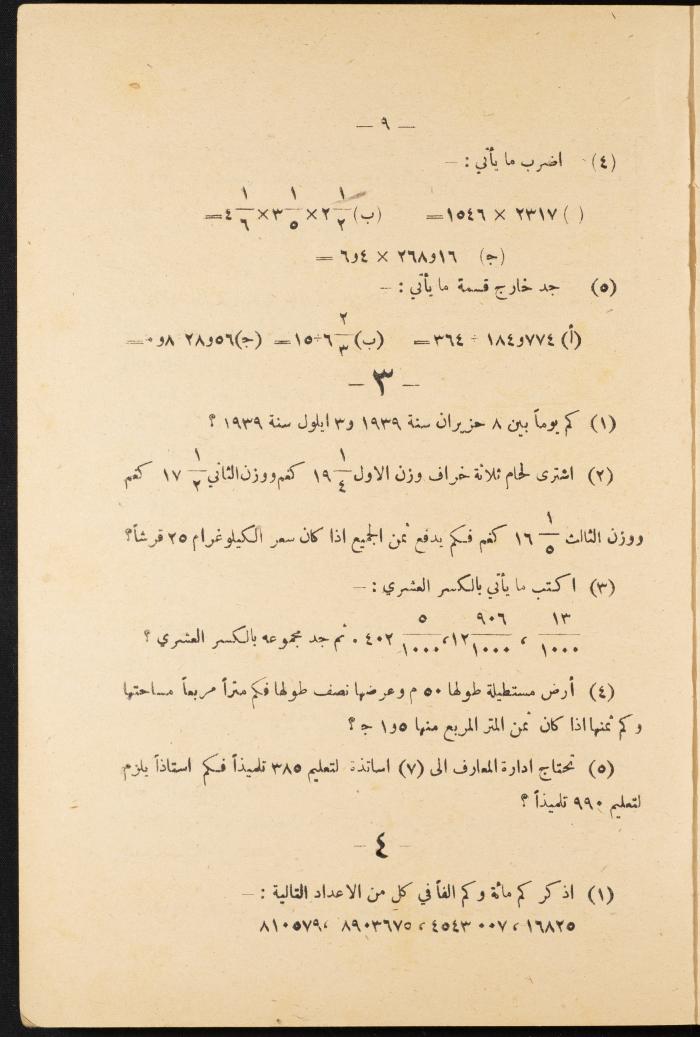 — ٩ —
(٤) اضرب ما يأتي : —
( ) ٢٣١٧ × ١٥٤٦ = (ب) ٢ ١/٢ × ٣ ١/٥ × ٤ ١/٦ =
(ج) ١٦و٢٦٨ × ٤و٦ =
(٥) جد خارج قسمة ما يأتي : —
(أ) ٧٧٤و١٨٤ ÷ ٣٦٤ = (ب) ٦ ٢/٣ ÷ ١٥ = (ج) ٥٦و٢٨ ٨و٠ =
— ٣ —
(١) كم يوماً بين ٨ حزيران سنة ١٩٣٩ و٣ ايلول سنة ١٩٣٩ ؟
(٢) اشترى لحام ثلاثة خراف وزن الاول ١٩ ١/٤ كغم ووزن الثاني ١٧ ١/٢ كغم
ووزن الثالث ١٦ ١/٥ كغم فكم يدفع ثمن الجميع اذا كان سعر الكيلوغرام ٢٥ قرشاً؟
(٣) اكتب ما يأتي بالكسر العشري : —
١٣/١٠٠٠ ، ١٢ ٩٠٦/١٠٠٠ ، ٤٠٢ ٥/١٠٠٠ . ثم جد مجموعه بالكسر العشري ؟
(٤) أرض مستطيلة طولها ٥٠ م وعرضها نصف طولها فكم متراً مربعاً مساحتها
وكم ثمنها اذا كان ثمن المتر المربع منها ٥و١ ج ؟
(٥) تحتاج ادارة المعارف الى (٧) اساتذة لتعليم ٣٨٥ تلميذاً فكم استاذاً يلزم
لتعليم ٩٩٠ تلميذاً ؟
— ٤ —
(١) اذكر كم مائة وكم الفاً في كل من الاعداد التالية : —
١٦٨٢٥ ، ٤٥٤٣٠٠٧ ، ٨٩٠٣٦٧٥ ، ٨١٠٥٧٩